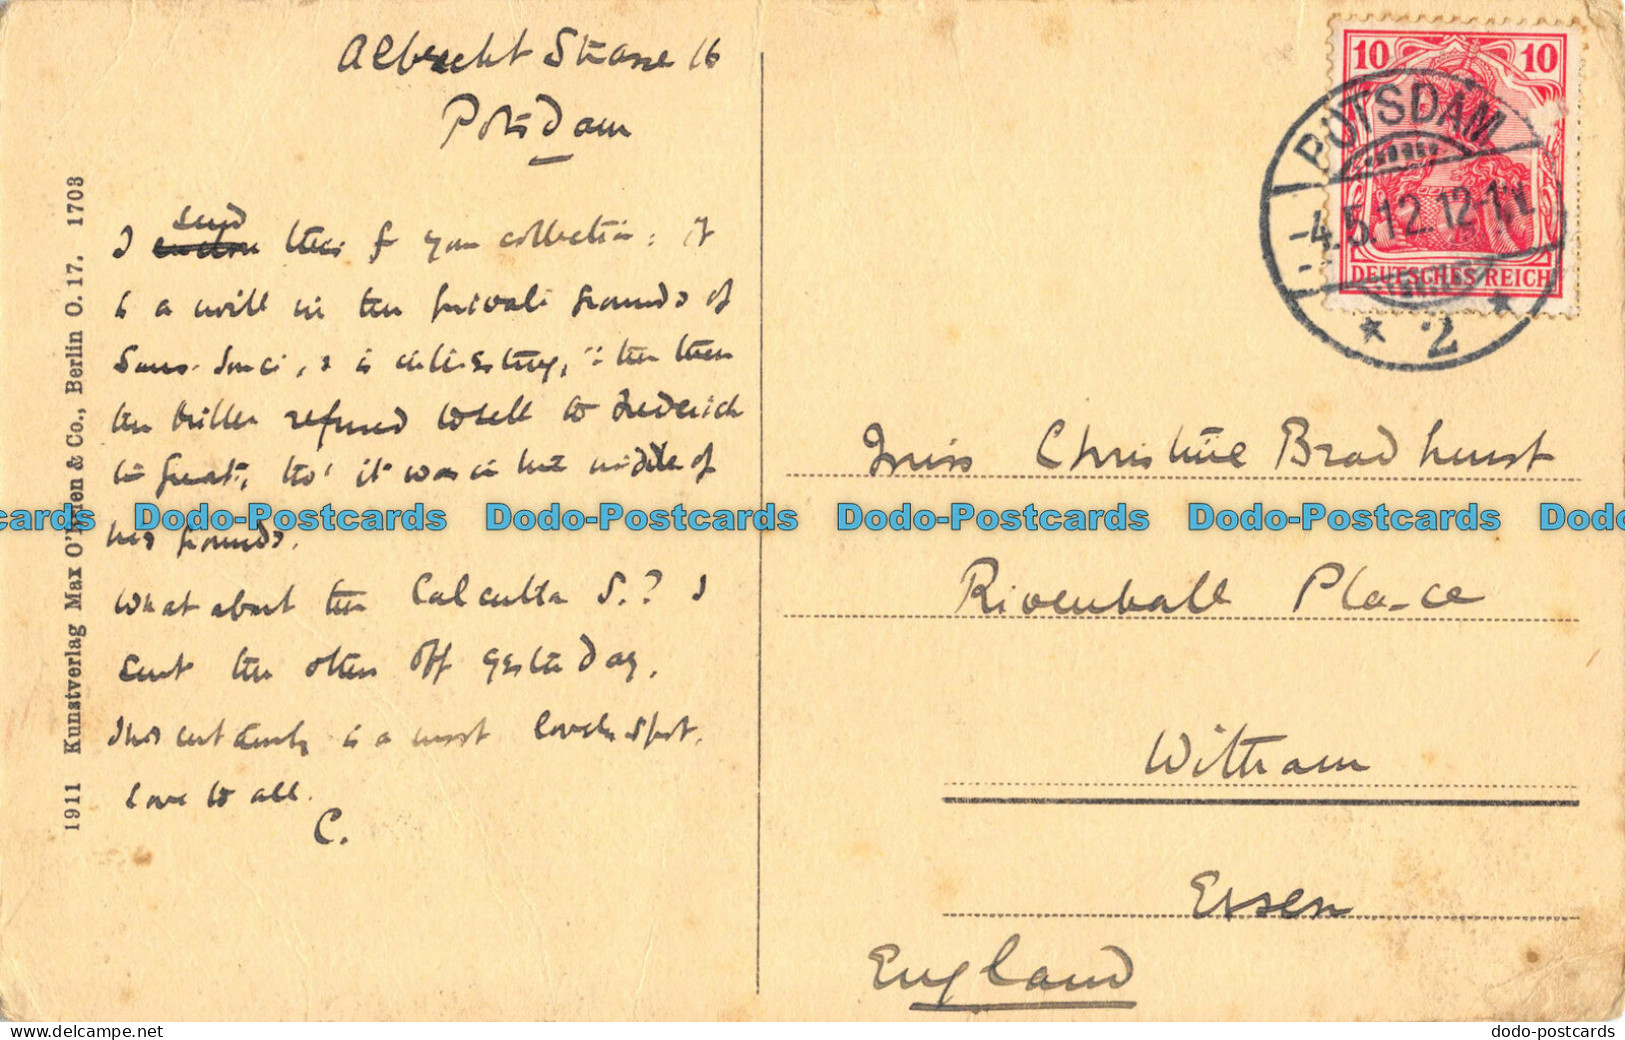 Albrecht Strasse 16
Potsdam
send
I enclose this for your collection: it
is a mill in the private grounds of
Sans-Souci, & is interesting, ∵ the then
the miller refused to sell to Frederich
the Great, tho' it was in the middle of
his grounds.
What about the Calcutta S.? I
sent the other off yesterday.
This certainly is a most lovely spot.
Love to all.
C.
1911 Kunstverlag Max O'Brien & Co., Berlin O. 17. 1703
10 10
DEUTSCHES REICH
POTSDAM
-4.5.12.12-1N.
* 2 *
Miss Christine Bradhurst
Rivenhall Place
Witham
Essex
England
Dodo-Postcards Dodo-Postcards Dodo-Postcards Dodo-Postcards
dodo-postcards